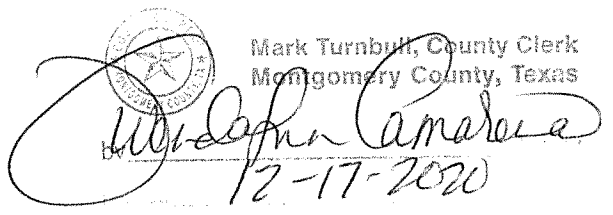 Mark Turnbull, County Clerk
Montgomery County, Texas
by Wenda Ann Camarena
12-17-2020